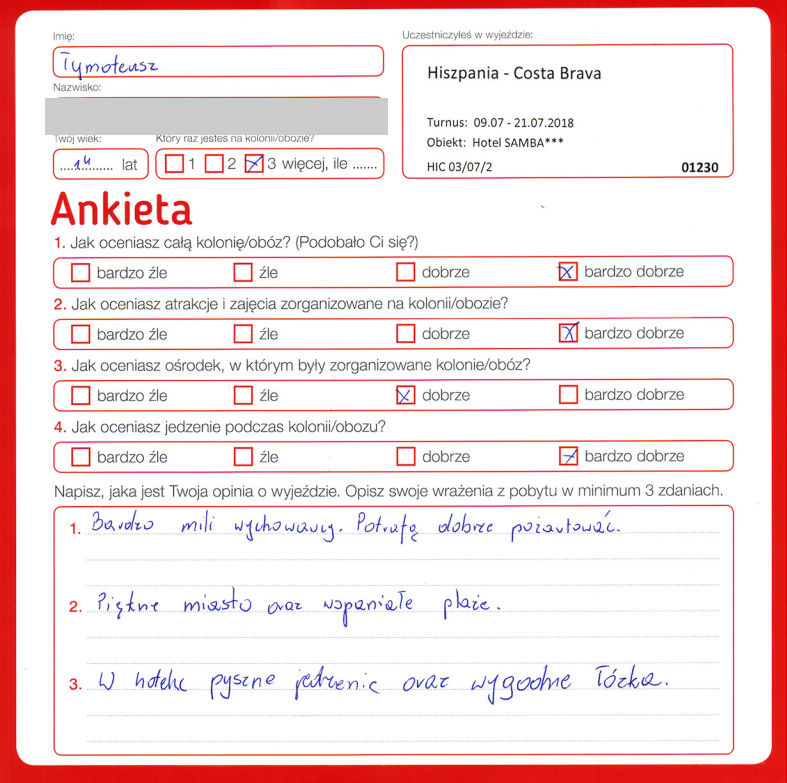 Imię:
Tymoteusz
Nazwisko:
Twój wiek:
14 lat
Który raz jesteś na kolonii/obozie?
1 2 3 więcej, ile .......
Uczestniczyłeś w wyjeździe:
Hiszpania - Costa Brava
Turnus: 09.07 - 21.07.2018
Obiekt: Hotel SAMBA***
HIC 03/07/2 01230
Ankieta
1. Jak oceniasz całą kolonię/obóz? (Podobało Ci się?)
bardzo źle źle dobrze bardzo dobrze
2. Jak oceniasz atrakcje i zajęcia zorganizowane na kolonii/obozie?
bardzo źle źle dobrze bardzo dobrze
3. Jak oceniasz ośrodek, w którym były zorganizowane kolonie/obóz?
bardzo źle źle dobrze bardzo dobrze
4. Jak oceniasz jedzenie podczas kolonii/obozu?
bardzo źle źle dobrze bardzo dobrze
Napisz, jaka jest Twoja opinia o wyjeździe. Opisz swoje wrażenia z pobytu w minimum 3 zdaniach.
1. Bardzo mili wychowawcy. Potrafą dobrze pożartować.
2. Piękne miasto oraz wspaniałe plaże.
3. W hotelu pyszne jedzenie oraz wygodne łóżka.